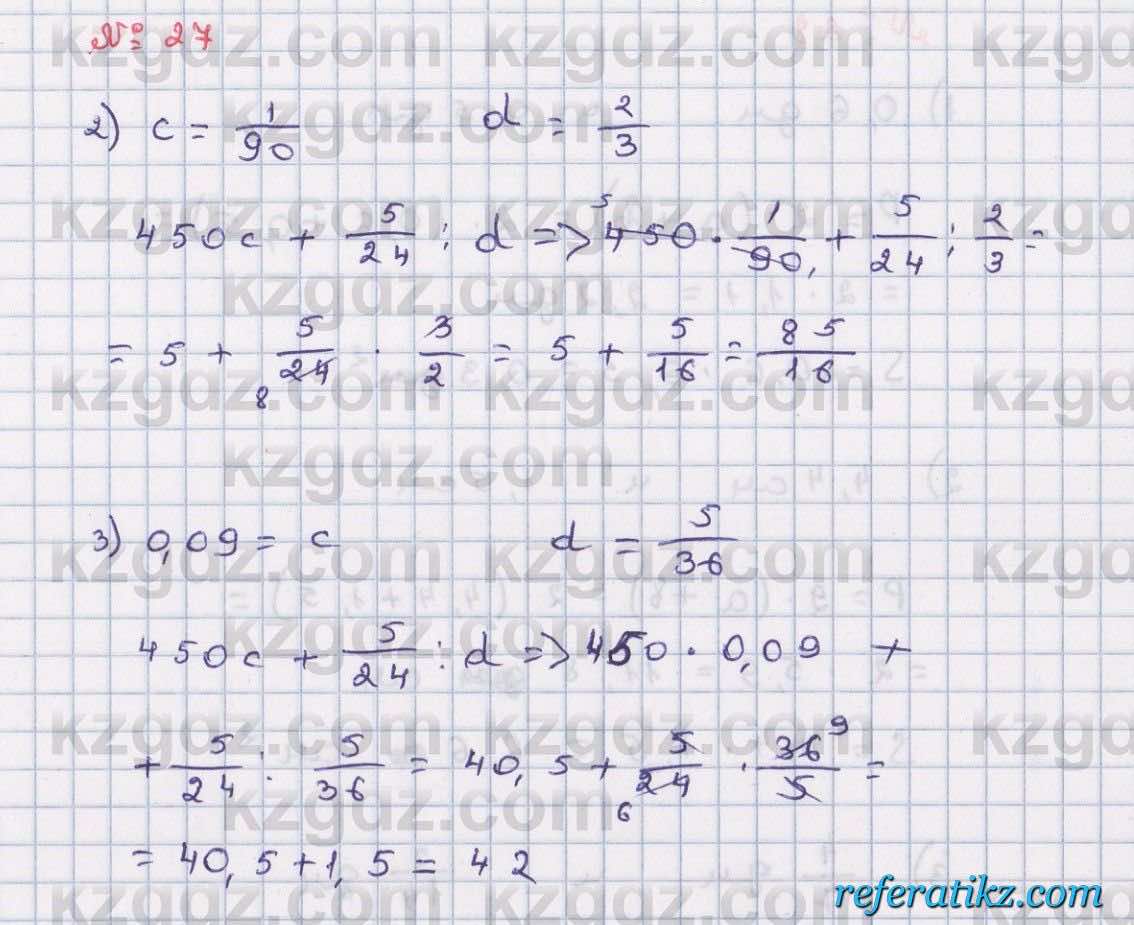 № 27
2) c = 1/90 d = 2/3
450c + 5/24 : d => 5 450 · 1/90, + 5/24 : 2/3 =
= 5 + 5/24 8 · 3/2 = 5 + 5/16 = 85/16
3) 0,09 = c d = 5/36
450c + 5/24 : d => 450 · 0,09 +
+ 5/24 : 5/36 = 40,5 + 5/24 6 · 36 9/5 =
= 40,5 + 1,5 = 42
kzgdz.com
referatikz.com